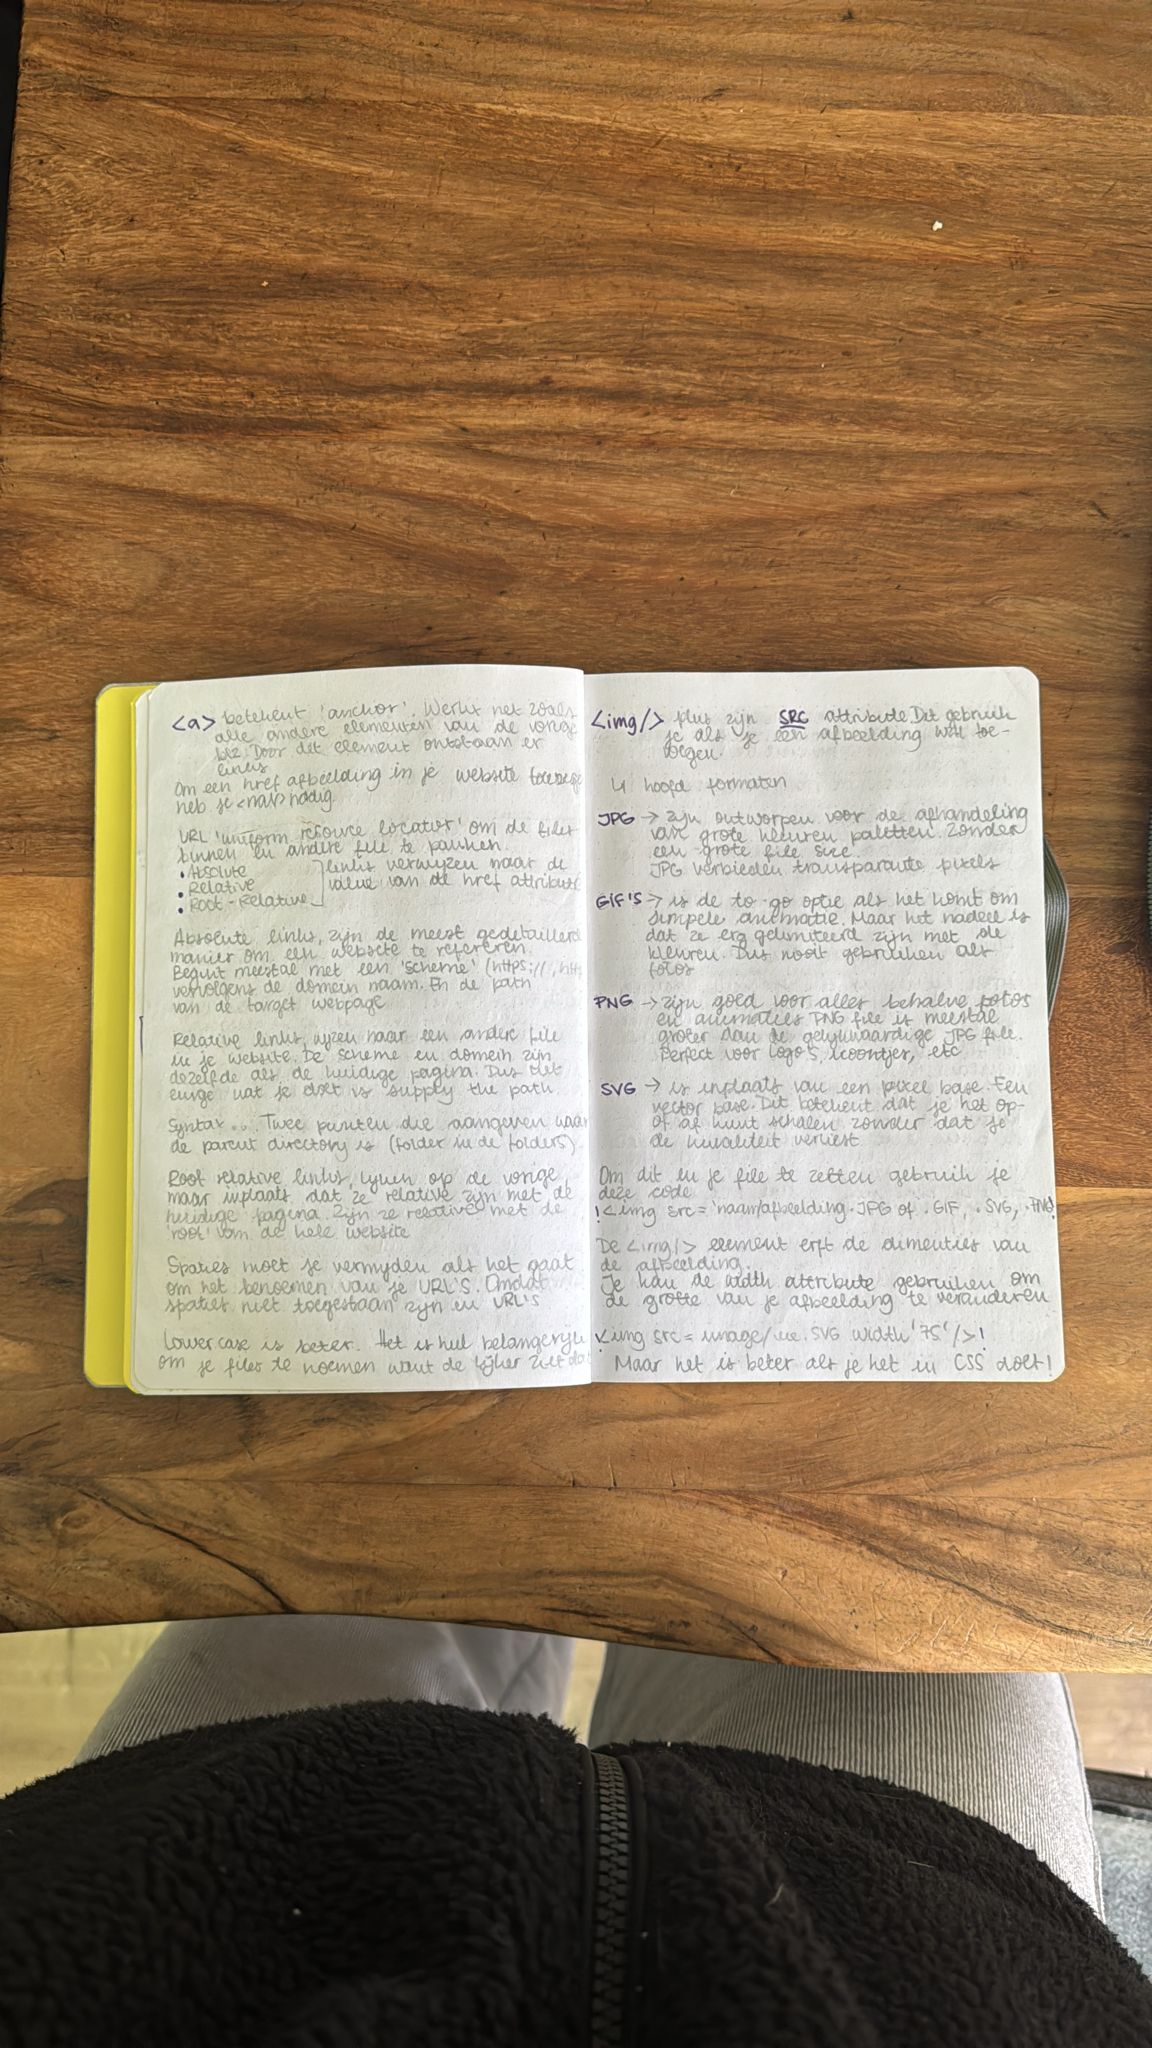 <a> betekent 'anchor'. Werkt net zoals
alle andere elementen van de vorige
blz. Door dit element ontstaan er
links
Om een href afbeelding in je website
heb je <nav> nodig
URL 'uniform resource locator' om de files
binnen en andere file te
• Absolute
• Relative
• Root-Relative
links verwijzen naar de
value van de href attribute
Absolute links, zijn de meest gedetailleerd
manier om een website te refereren.
Begint meestal met een 'scheme' (https://
vervolgens de domein naam. En de path
van de target webpage
Relative links, wijzen naar een andere file
in je website. De scheme en domein zijn
dezelfde als de huidige pagina. Dus het
enige wat je doet is supply the path
Syntax .. Twee punten die aangeven waar
de parent directory is (folder in de folders)
Root relative links, lijken op de vorige,
maar inplaats dat ze relative zijn met de
huidige pagina. Zijn ze relative met de
'root' van de hele website
Spaties moet je vermijden als het gaat
om het benoemen van je URL'S. Omdat
spaties niet toegestaan zijn in URL'S
Lower case is beter. Het is heel belangerijk
om je files te noemen want de kijker ziet
<img/> plus zijn SRC attribute. Dit gebruik
je als je een afbeelding wil toe-
voegen.
4 hoofd formaten
JPG → zijn ontworpen voor de afhandeling
van grote kleuren paletten. Zonder
een grote file size.
JPG verbieden transparante pixels
GIF'S → is de to-go optie als het komt om
simpele animatie. Maar het nadeel is
dat ze erg gelimiteerd zijn met de
kleuren. Dus nooit gebruiken als
fotos
PNG → zijn goed voor alles behalve fotos
en animaties PNG file is meestal
groter dan de gelijkwaardige JPG file.
Perfect voor logo's, icoontjes, etc
SVG → is inplaats van een pixel base. Een
vector base. Dit betekent dat je het op-
of af kunt schalen zonder dat je
de kwaliteit verliest
Om dit in je file te zetten gebruik je
deze code
!<img src='naam/afbeelding.JPG of .GIF, .SVG, .PNG!
De <img/> element erft de dimenties van
de afbeelding.
Je kan de width attribute gebruiken om
de grotte van je afbeelding te veranderen
<img src= image/ .SVG width '75'/>!
Maar het is beter als je het in CSS doet!